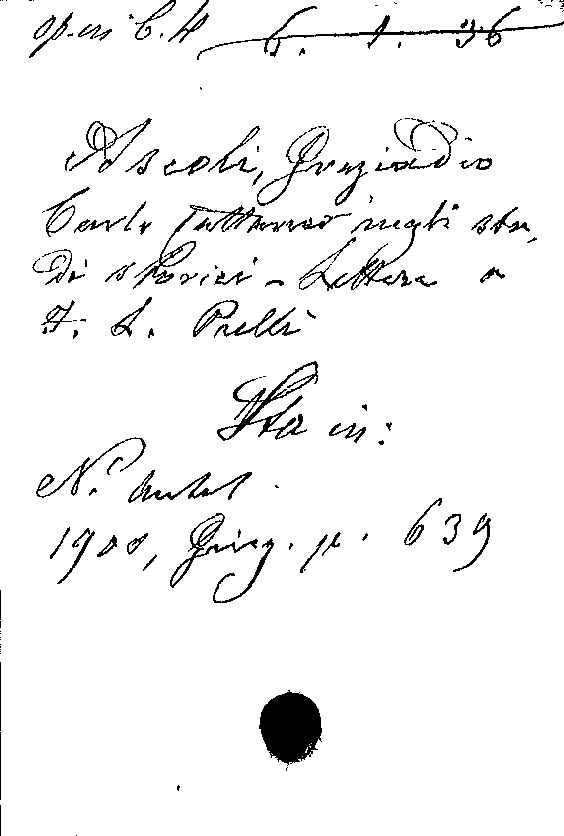 op. in C. 4 6. 1. 36
Ascoli, Graziadio
Carlo Cattaneo negli stu,
di storici - Lettera a
L. Pullè
Sta in:
N. Antol.
1900, Giug. p. 639